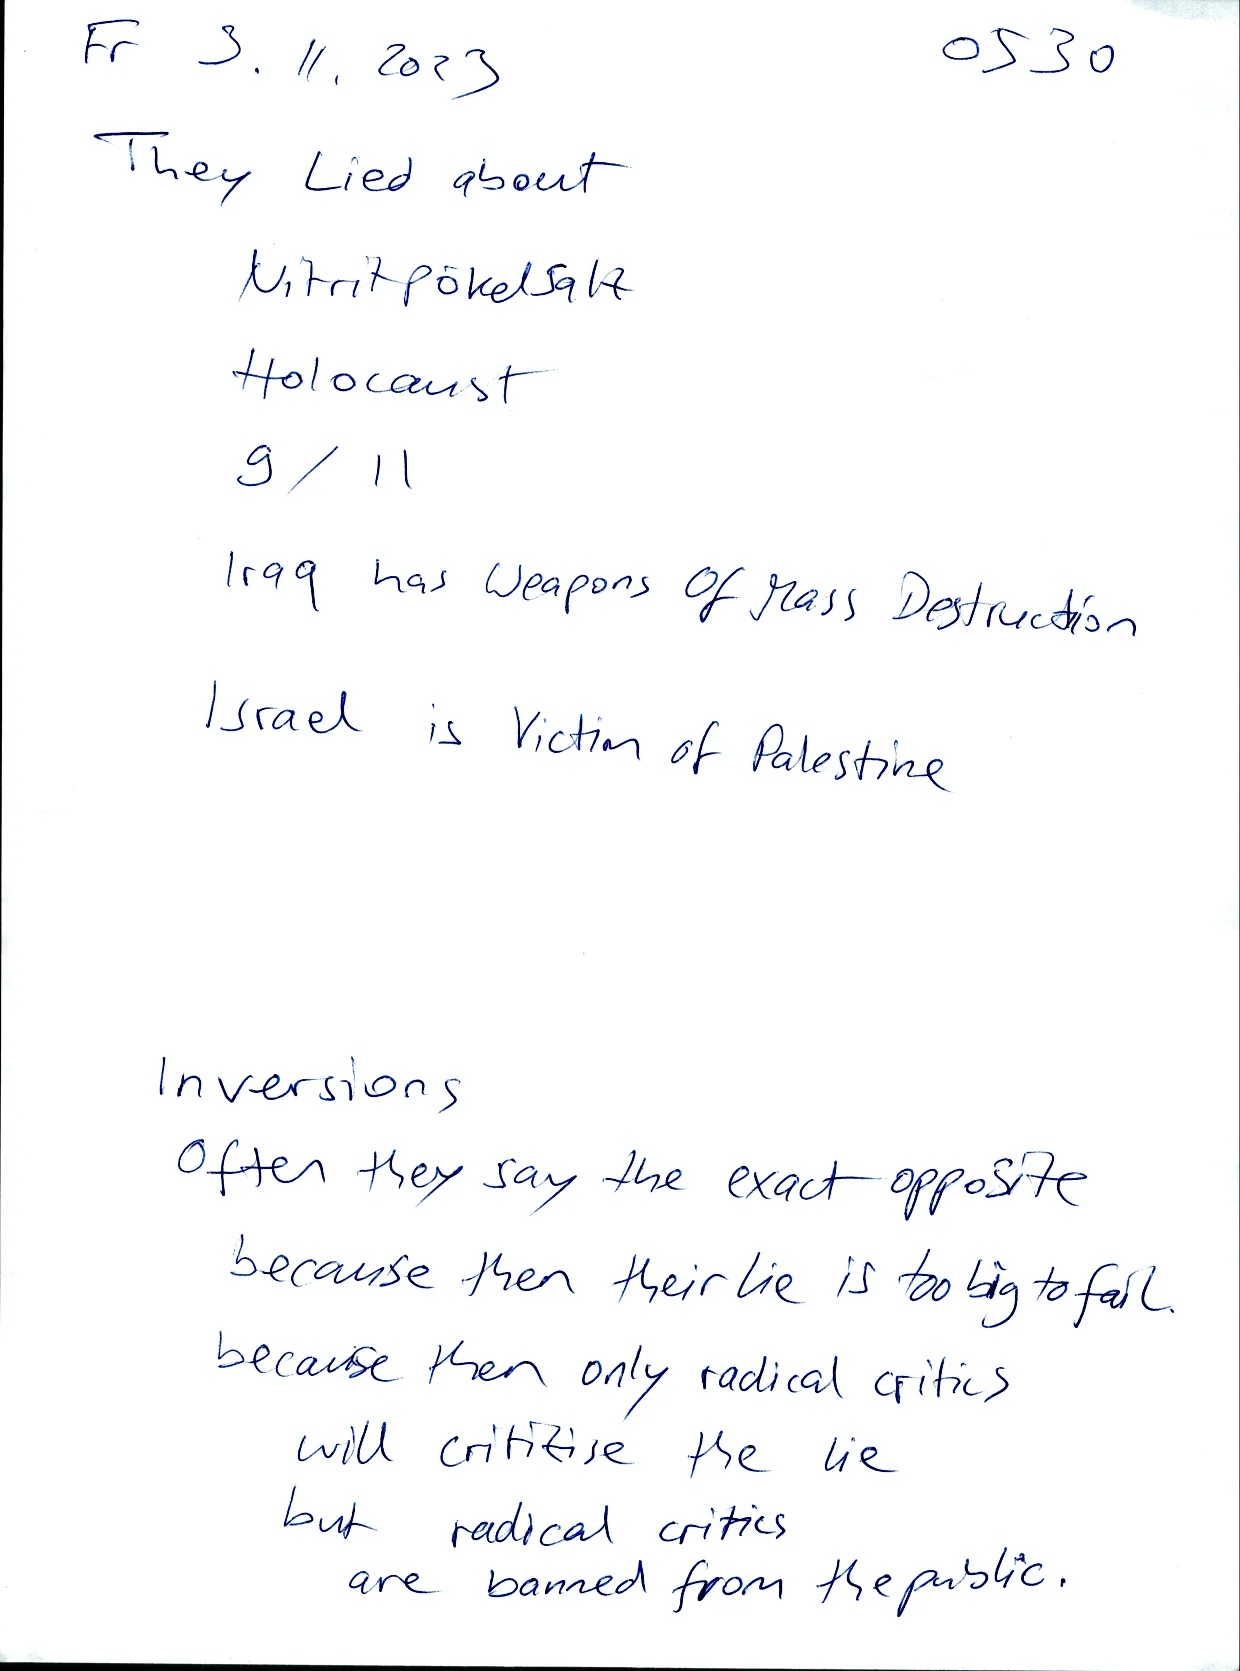 Fr 3. 11. 2023 0530
They Lied about
Nitritpökelsalz
Holocaust
9/11
Iraq has Weapons Of Mass Destruction
Israel is Victim of Palestine
Inversions
Often they say the exact opposite
because then their lie is too big to fail.
because then only radical critics
will critizise the lie
but radical critics
are banned from the public.